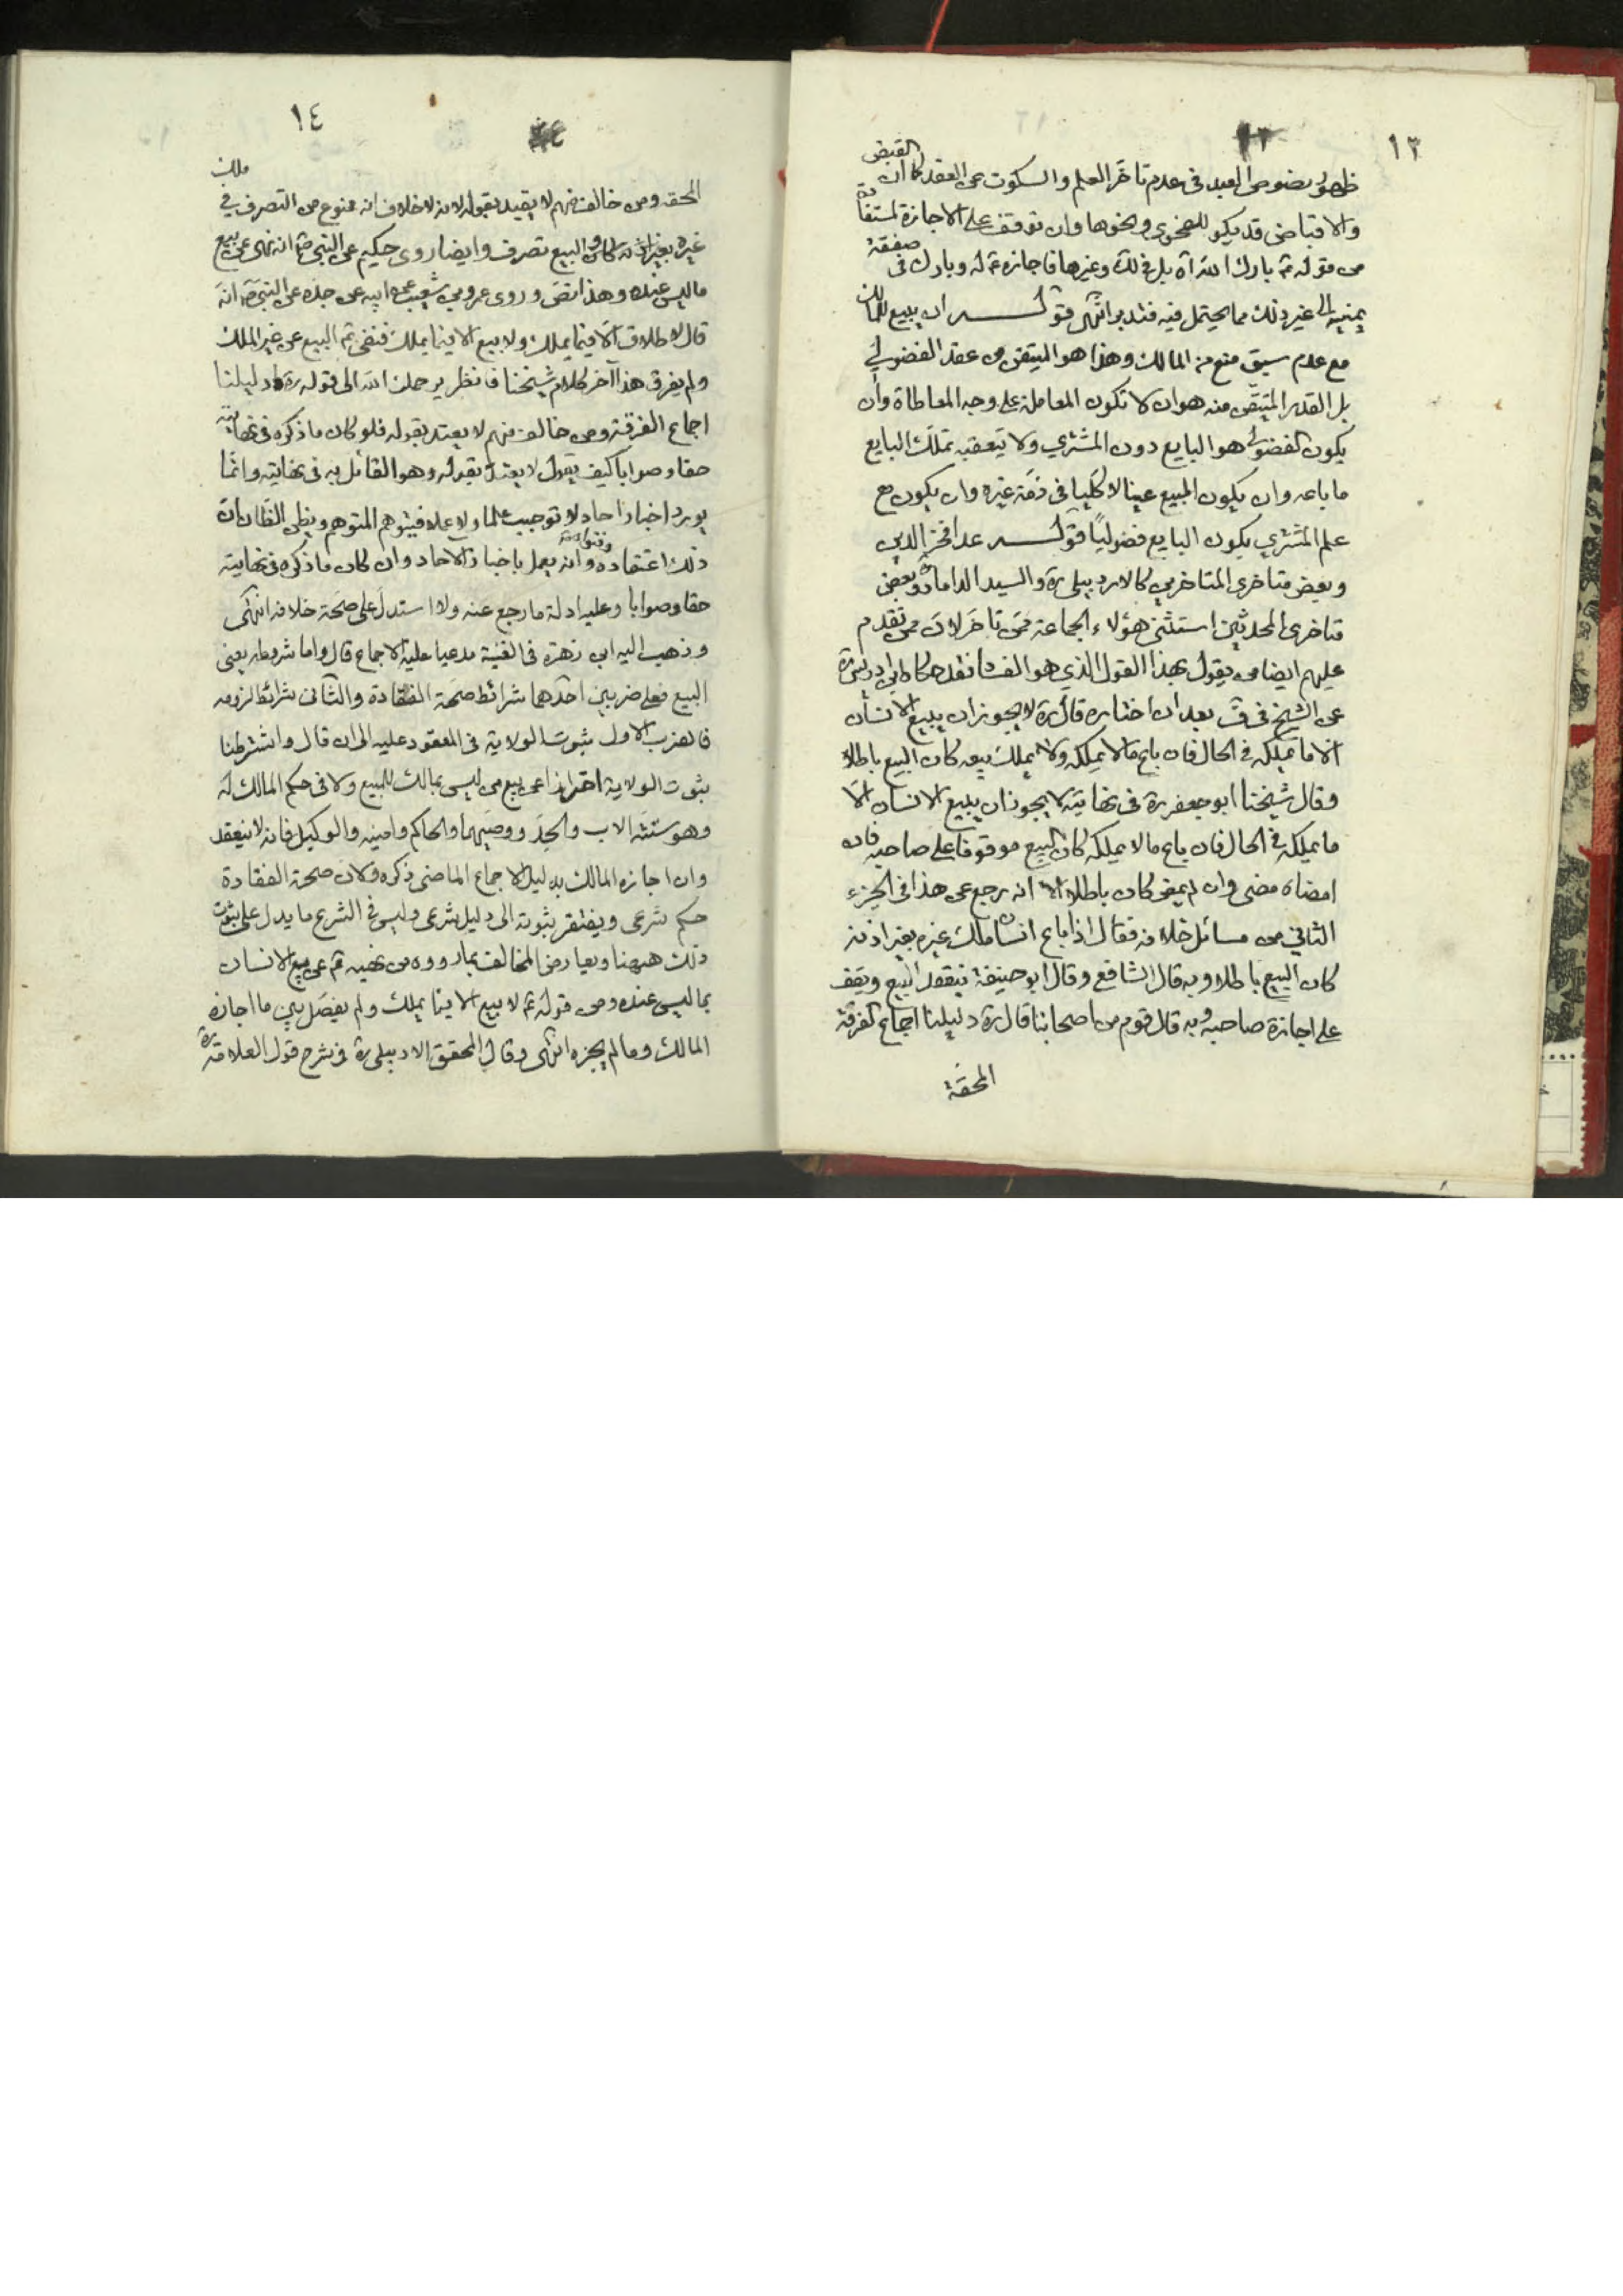 ١٣
ظهور نصوص العبد فى عدم تاخر العلم والسكوت عن العقد كما ان القبض
والاقباض قد يكون للضحوى ونحوها وان توقف على الاجازة المستفادة
من قوله بارك الله اه بل فى ذلك وغيرها فاجازه له وبارك فى صفقة
يمينه الى غير ذلك مما يحتمل فيه فتدبر انتهى قوله ان يبيع للمالك
مع عدم سبق منع من المالك وهذا هو المتيقن من عقد الفضولى
بل القدر المتيقن منه هو ان لا تكون المعاملة على وجه المعاطاة وان
يكون الفضولى هو البايع دون المشترى ولا يتعقبه تملك البايع
ما باعه وان يكون المبيع عينا لا كليا فى ذمة غيره وان يكون مع
علم المشتري بكون البايع فضوليًا قوله عدا فخر الدين
وبعض متاخرى المتاخرين كالاردبيلى ره والسيد الداماد وبعض
متاخرى المحدثين استثنى هؤلاء الجماعة ممن تاخر لان ممن تقدم
عليهم ايضا من يقول بهذا القول الذي هو الفساد فقد حكى ابن ادريس ره
عن الشيخ فى ف بعد ان اختاره قال ره لا يجوز ان يبيع الانسان
الا ما يملكه فى الحال فان باع ما لا يملكه ولا يملك بيعه كان البيع باطلا
وقال شيخنا ابو جعفر ره فى نهايته لا يجوز ان يبيع الانسان الا
ما يملكه فى الحال فان باع ما لا يملكه كان البيع موقوفا على صاحبه فان
امضاه مضى وان لم يمض كان باطلا الا انه رجع عن هذا فى الجزء
الثاني من مسائل خلافه فقال اذا باع انسان ملك غيره بغير اذنه
كان البيع باطلا وبه قال الشافعى وقال ابو حنيفة ينعقد البيع ويقف
على اجازة صاحبه وبه قال قوم من اصحابنا قال ره دليلنا اجماع الفرقة
المحقة
١٤
المحقه ومن خالف منهم لا يعتد بقوله لانه لا خلاف انه ممنوع من التصرف فى ملك
غيره بغير اذنه والبيع تصرف وايضا روى حكيم عن النبى ص انه نهى عن بيع
ما ليس عنده وهذا نص وروى عمرو بن شعيب عن ابيه عن جده عن النبى ص انه
قال لا طلاق الا فيما يملك ولا بيع الا فيما يملك فنفى ع البيع عن غير الملك
ولم يفرق هذا آخر كلام شيخنا فانظر يرحمك الله الى قوله ره دليلنا
اجماع الفرقة ومن خالف منهم لا يعتد بقوله فلو كان ما ذكره فى نهايته
حقا وصوابا كيف يقول لا يعتد بقوله وهو القائل به فى نهايته وانما
يورد اخبارا احاد لا توجب علما ولا عملا فيتوهم المتوهم ويظن الظان ان
ذلك اعتقاده وفتواه وانه يعمل باخبار الاحاد وان كان ما ذكره فى نهايته
حقا وصوابا وعليه ادلة ما رجع عنه ولا استدل على صحة خلافه انتهى
وذهب اليه ابن زهرة فى الغنية مدعيا عليه الاجماع قال واما شروطه يعنى
البيع فعلى ضربين احدهما شرائط صحة انعقاده والثانى شرائط لزومه
فالضرب الاول ثبوت الولاية فى المعقود عليه الى ان قال واشترطنا
ثبوت الولاية احترازا عن بيع من ليس بمالك للمبيع ولا فى حكم المالك له
وهو ستة الاب والجد ووصيهما والحاكم وامينه والوكيل فانه لا ينعقد
وان اجازه المالك بدليل الاجماع الماضى ذكره ولان صحة انعقاده
حكم شرعى ويفتقر ثبوته الى دليل شرعى وليس فى الشرع ما يدل على ثبوت
ذلك هيهنا ويعارض المخالف بما رووه من نهيه ع عن بيع الانسان
بما ليس عنده ومن قوله ع لا بيع الا فيما يملك ولم يفصل بين ما اجازه
المالك وما لم يجزه انتهى وقال المحقق الاردبيلى ره فى شرح قول العلامة ره